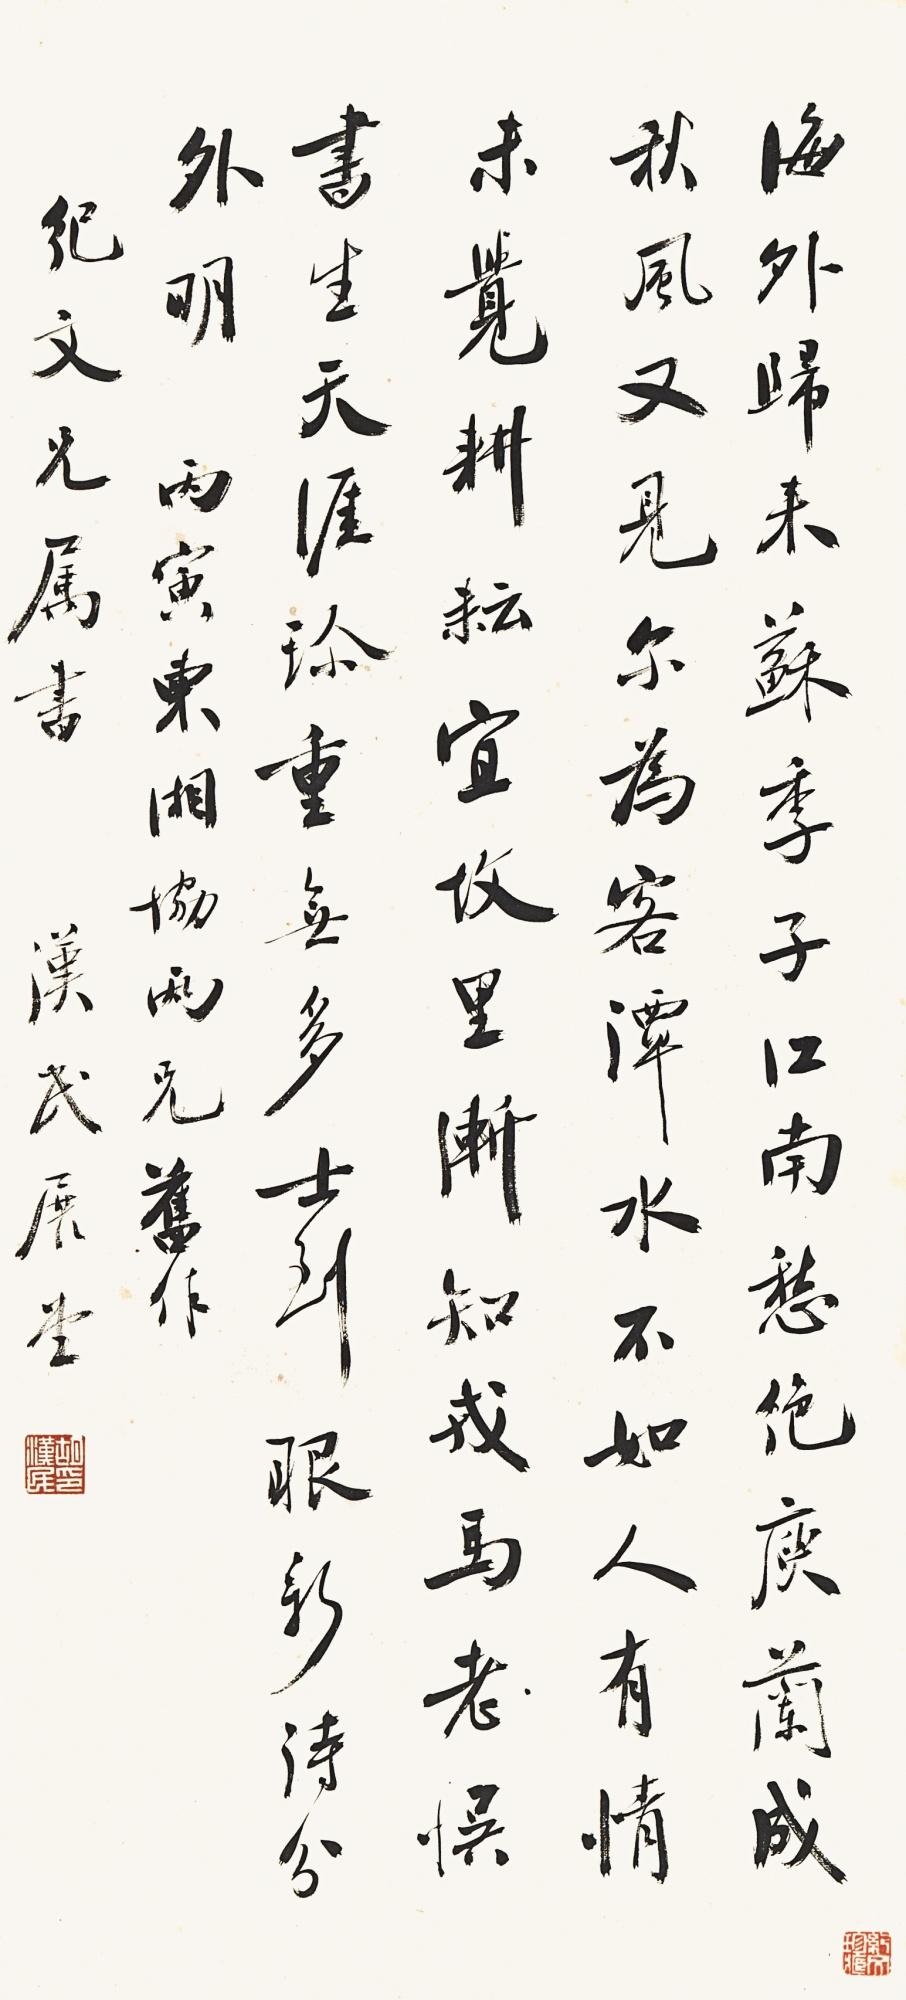 海外歸来蘇季子江南愁絶庾蘭成
秋風又見尔為客潭水不如人有情
未覺耕耘宜故里漸知戎馬老悮
書生天涯珍重無多士到眼新詩分
外明 丙寅東湘協兩兄舊作
紀文兄属書 漢民展堂
胡漢民印